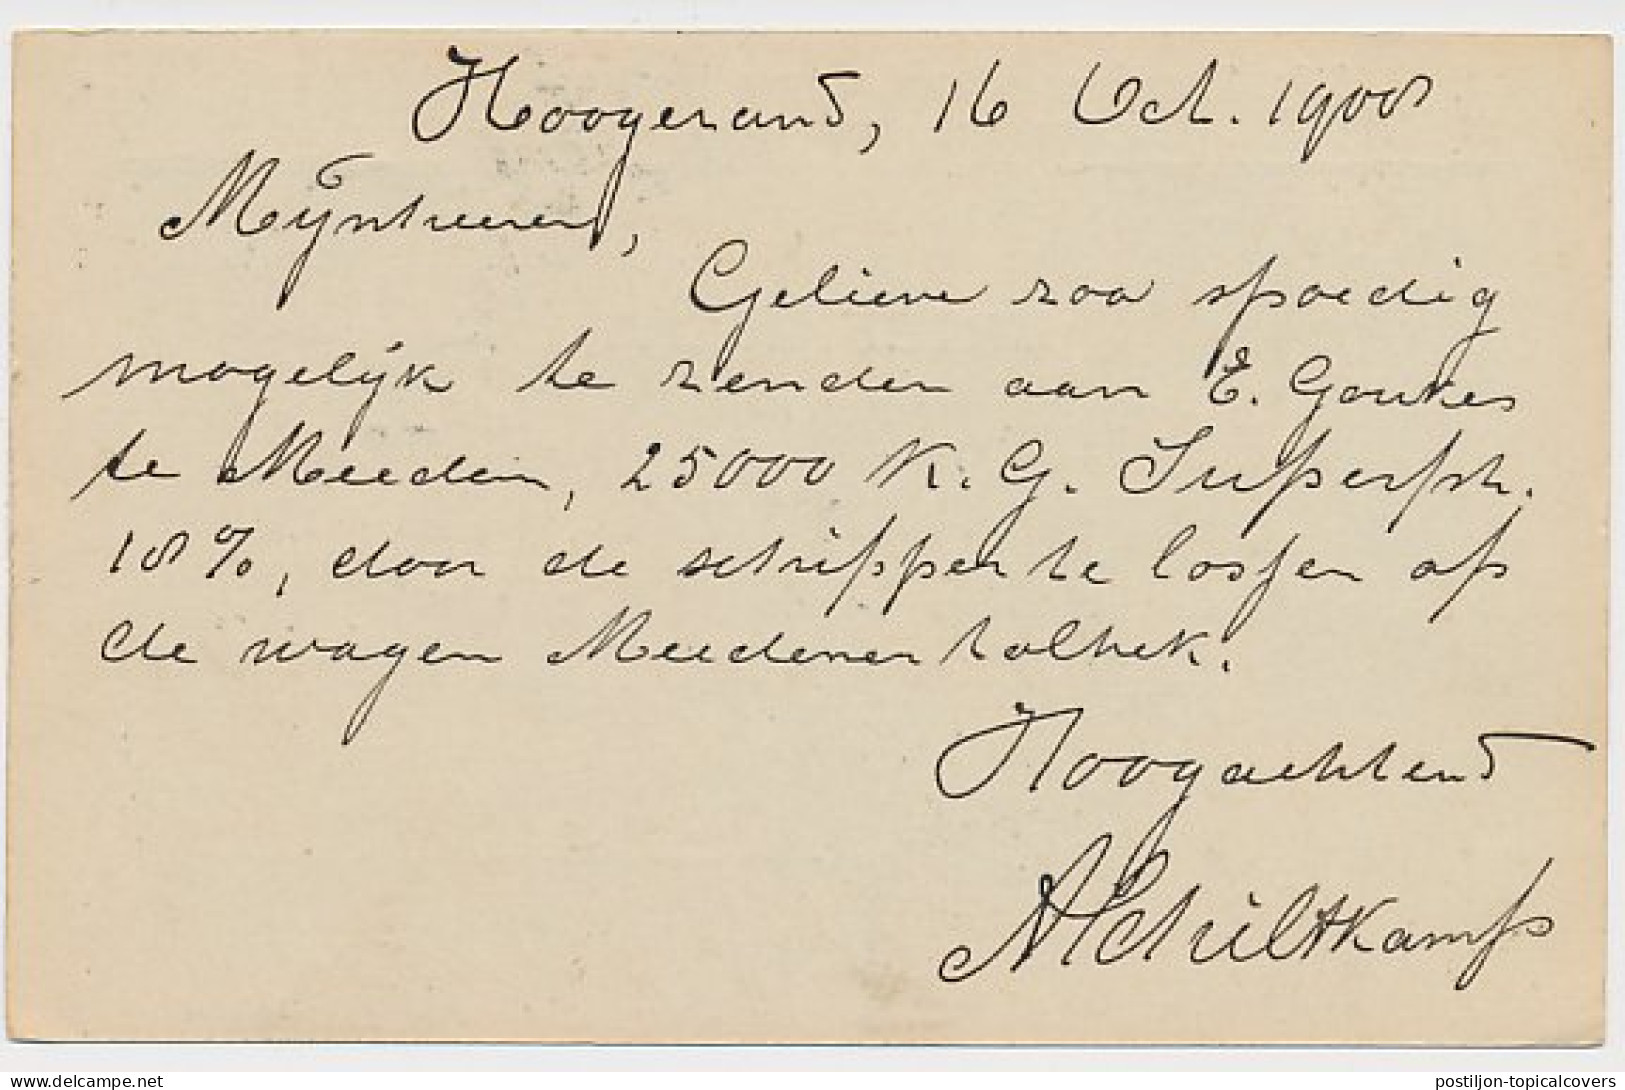 Hoogezand, 16 Oct. 1908
Mijnheeren,
Gelieve zoo spoedig
mogelijk te zenden aan E. Goukes
te Meeden, 25000 K. G. Superph.
18%, door de schipper te lossen op
de wagen Meedener tolhek.
Hoogachtend
Schiltkamp
delcampe.net
postiljon-topicalcovers